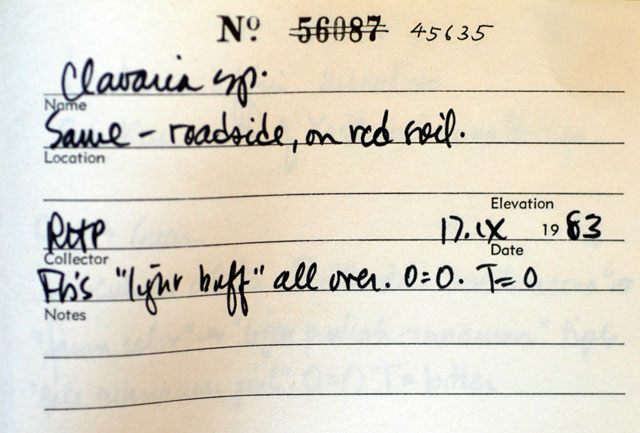 Nº 56087 45635
Clavaria sp.
Name
Same - roadside, on red soil.
Location
Elevation
RHP 17.IX 1983
Collector Date
Fb's "light buff" all over. O=O. T=O
Notes